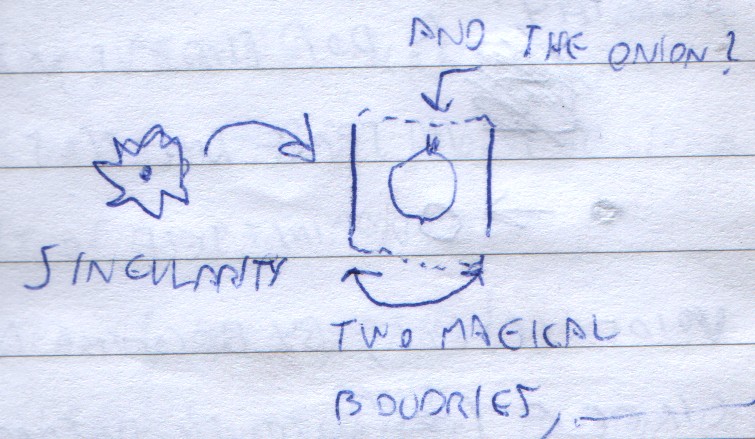 AND THE ONION?
SINGULARITY
TWO MAGICAL
BOUDRIES,